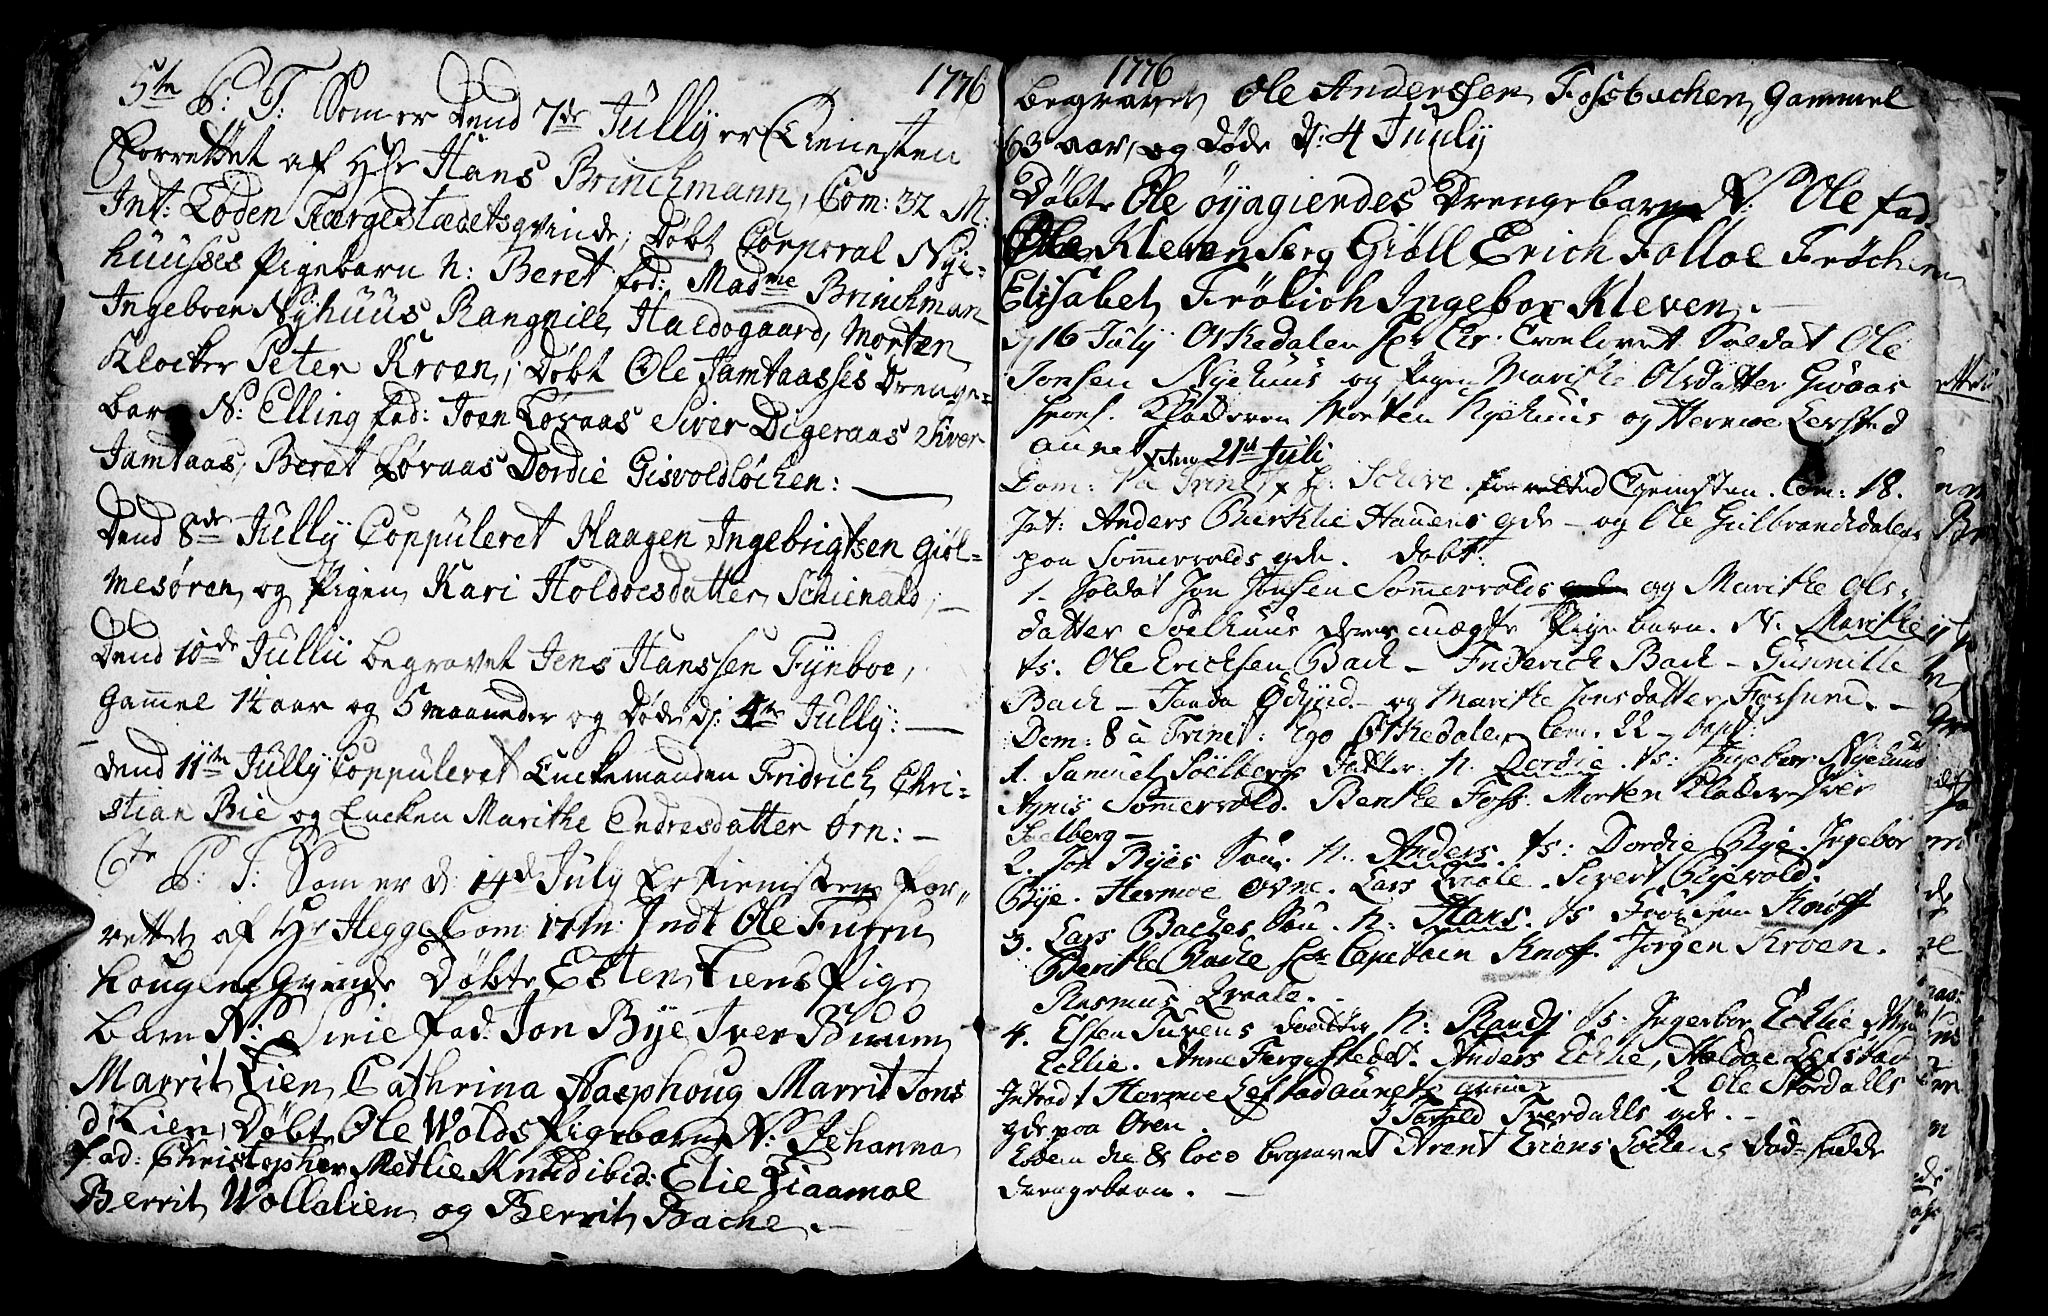 1776
5te P: T: Som er Dend 7de Jully er Tienesten
Forrettet af Hr Hans Brinchmann, Com: 32 M:
Int: Loden Fargestædetsqvinde, Døbt Corporal Nye-
huusses Pigebarn N: Beret fad: Madme Brinchman
Ingebor Nyhuus Rangnill Haldogaard, Morten
Klocker Peter Kroen, Døbt Ole Jamtaasses Drenge-
barn N: Elling fad: Joen Løraas Siver Digeraas Siver
Jamtaas, Beret Løraas Dordie Gisvoldløchen:
Dend 8de Jully Coppuleret Haagen Ingebrigtsen Giøl-
mesøren og Pigen Kari Holdoesdatter Schienald,
Dend 10de Jullii begravet Jens Hanssen Fynboe,
Gammel 14 aar og 5 maaneder og Døde d: 4te Jully:
Dend 11te Jully Coppuleret Enckemanden Fridrich Chri-
stian Bie og Encken Marithe Endresdatter Ørn:
6te P: T: Som er d: 14de July er Tienisten for-
rettet af Hr Hegge Com: 17 M: Indt Ole Furru
hougens Qvinde Døbt Esten Liens Pige
barn N: Sirie Fad: Jon Bye Iver Buum
Marrit Lien Cathrina Aasphoug Marrit Jons
d: Lien, Døbt Ole Wolds Pigebarn N: Jehanna
Fad: Christopher Metlie Knud ibid: Elie Tiaamoe
Berrit Wollalien og Berrit Bache.
1776
begravet Ole Anderssen Fossbachen Gammel
63 aar, og Døde d: 4 July
Døbt Ole Øyagiendes Drengebarn N: Ole fad:
Ole Kleven Serg Giøll Erich Folloe Frøchen
Elisabet Frølich Ingebor Kleven.
D 16 July Orkedalen Cr. Troelovet Soldat Ole
Jonsen Nyehuus og Pigen Marithe Olsdatter Gwaas
Spons. Klocheren Morten Nyehuus og Hermoe Lersted
aunet. den 21de Juli
Dom: 7 a Trinit x H: Schive forretted Tjenesten. Com: 18.
Int: Anders Bierklie Hauens qde - og Ole Guilbrandsdalens
paa Sommervolds qde. døbt:
1. Soldat Jon Jonsen Sommervolds og Marithe Ols-
datter Soelhuus deres uægte Pige barn. N. Marithe
ts. Ole Ericksen Bach - Friderich Bach - Gunnille
Bach - Jaada Ødjynd - og Marithe Jonsdatter Forsund. -
Dom: 8 a Trinit: Ego Orkedalen Com. 22 - bapt:
1. Samuel Soelbergs datter N. Dordie. ts: Ingebor Nyehuus
Agnis Sommervold. Benthe Foss. Morten Klocker Iver
Soelberg -
2. Jon Byes Søn N. Anders. ts: Dordie Bye. Ingebor
Bye. Hermoe Ovne. Lars Qvale. Sivert Bierwold.
3. Lars Baches Søn. N: Hans. ts Frøichen Knoff
Berithe Bache Hr Capitain Knoff Jørgen Kroen.
Rasmus Qvale.
4. Esten Turens daatter N: Randi ts: Ingebor Ecklie
Ecklie. Anne Fergestedet. Anders Ecklie, Haldoe Lefstad
Introd 1 Hermoe Lefstadaunets qvinde 2 Ole Stordahls
qde paa Øren. 3 Tarald Tverdahls qde. -
Eodem die & loco begravet Arent Eriens Lockens død-fødde
Drengebarn.